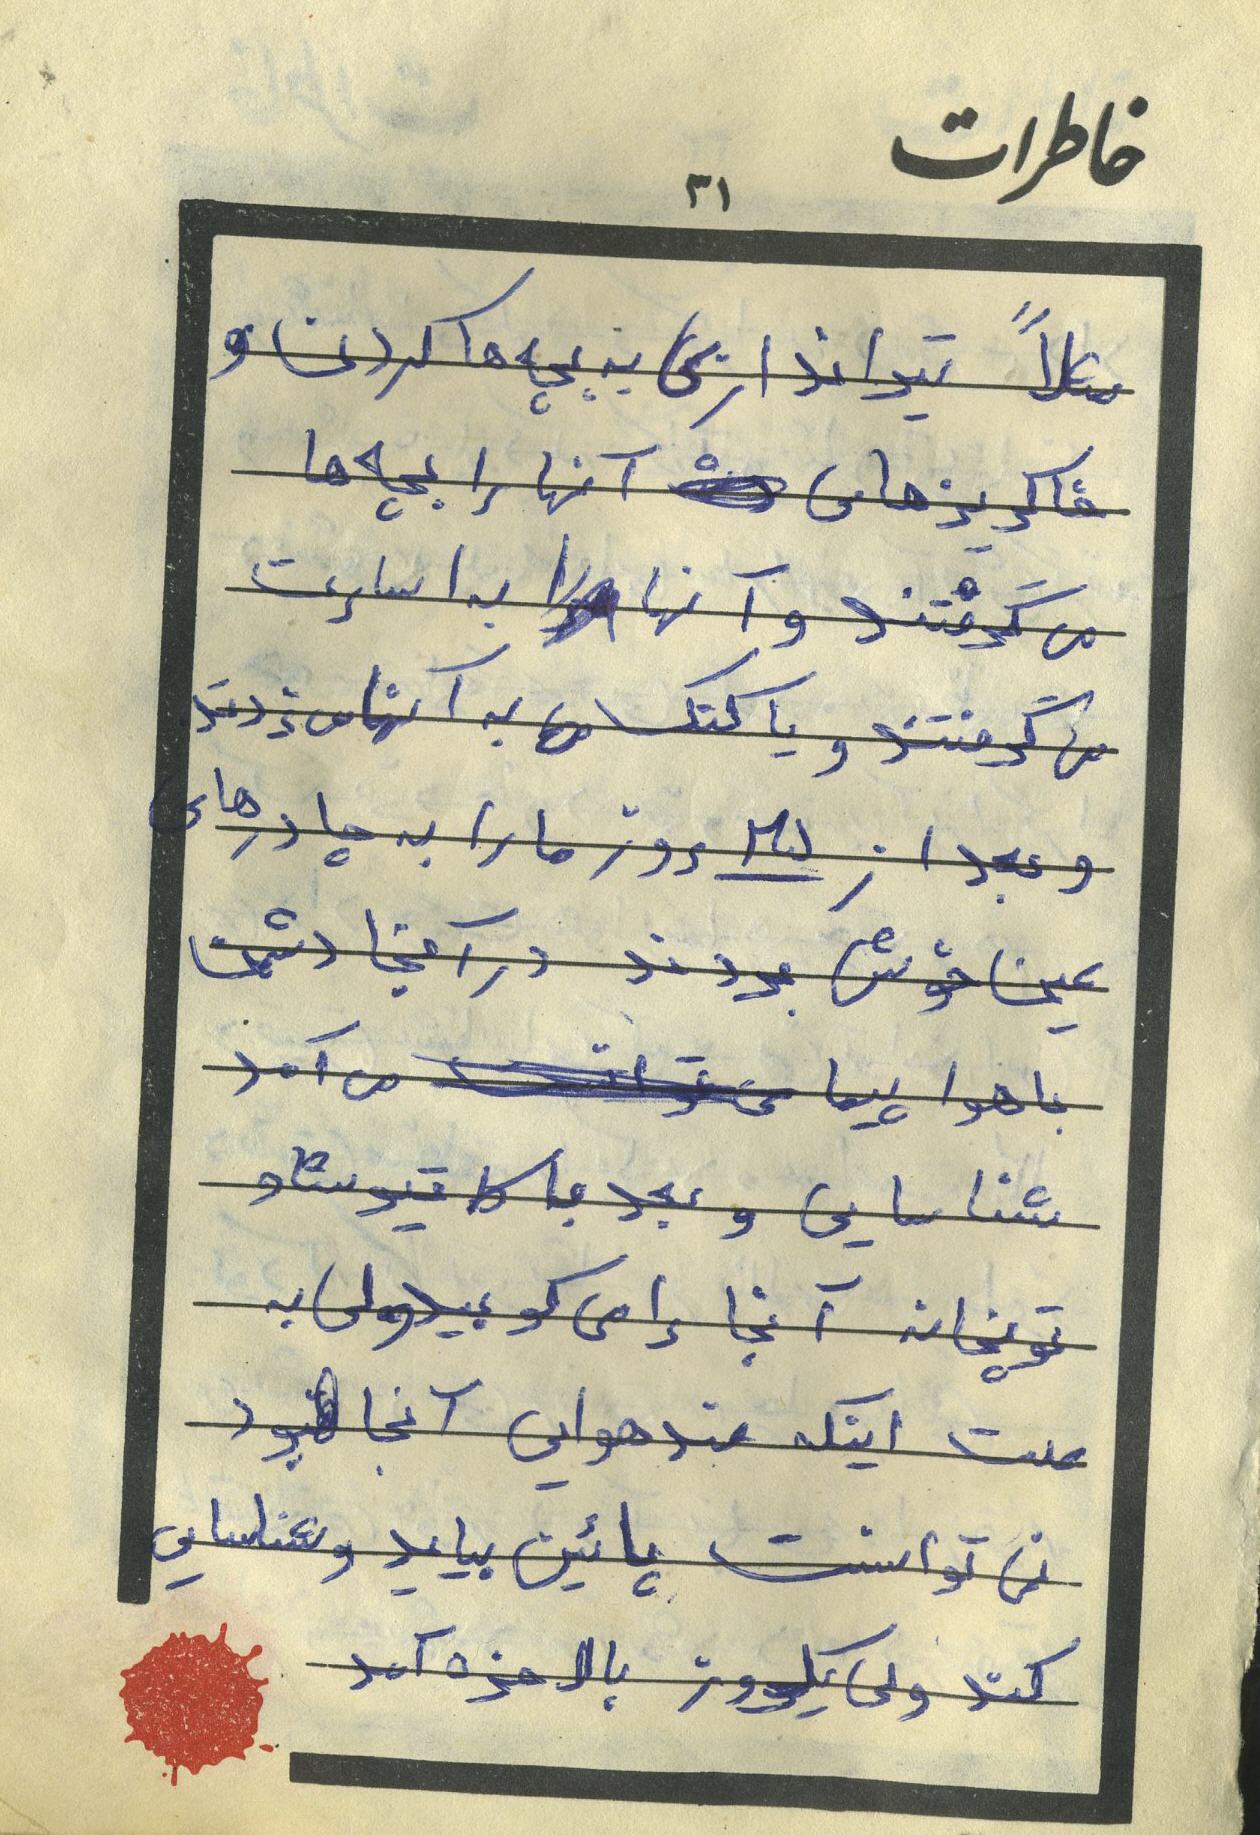 خاطرات
۳۱
مثلاً تیراندازی به بچه ها کردن و
خاکریزهای آنها را بچه ها
می گرفتند و آنها را به اسارت
می گرفتند و یا کتک به آنها می زدند
و بعد از روز ما را به چادرهای
عین خوش بردند در آنجا دشمن
با هواپیما می توانست می آمد
شناسایی و بعد با کاتیوشا و
توپخانه آنجا را می کوبید ولی به
علت اینکه ضد هوایی آنجا بود
نمی توانست پائین بیاید و شناسایی
کند ولی یکروز بالاخره آمد